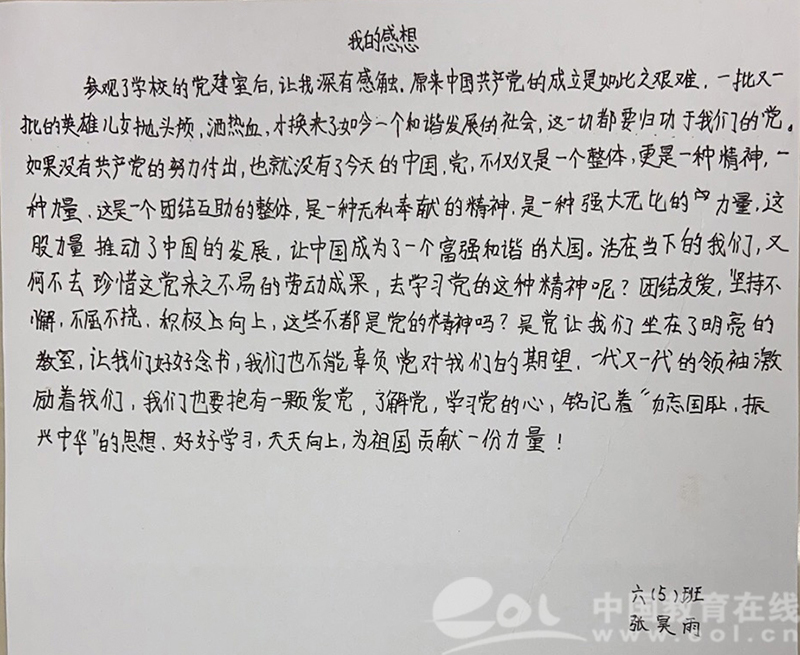 我的感想
参观了学校的党建室后,让我深有感触。原来中国共产党的成立是如此之艰难,一批又一
批的英雄儿女抛头颅,洒热血,才换来了如今一个和谐发展的社会,这一切都要归功于我们的党。
如果没有共产党的努力付出,也就没有了今天的中国,党,不仅仅是一个整体,更是一种精神,一
种力量、这是一个团结互助的整体,是一种无私奉献的精神,是一种强大无比的力量,这
股力量推动了中国的发展,让中国成为了一个富强和谐的大国。活在当下的我们,又
何不去珍惜这党来之不易的劳动成果,去学习党的这种精神呢?团结友爱,坚持不
懈,不屈不挠,积极上向上,这些不都是党的精神吗?是党让我们坐在了明亮的
教室,让我们好好念书,我们也不能辜负党对我们的期望,一代又一代的领袖激
励着我们,我们也要抱有一颗爱党,了解党,学习党的心,铭记着“勿忘国耻,振
兴中华”的思想、好好学习,天天向上,为祖国贡献一份力量!
六(5)班
张昊雨
eol 中国教育在线
www.eol.cn